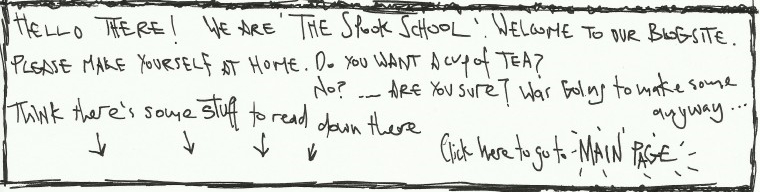 HELLO THERE! WE ARE 'THE SPOOK SCHOOL'. WELCOME TO OUR BLOGSITE.
PLEASE MAKE YOURSELF AT HOME. Do YOU WANT A cup of TEA?
No? ... ARE YOU SURE? Was Going to make some
anyway...
Think there's some stuff to read down there
Click here to go to MAIN PAGE